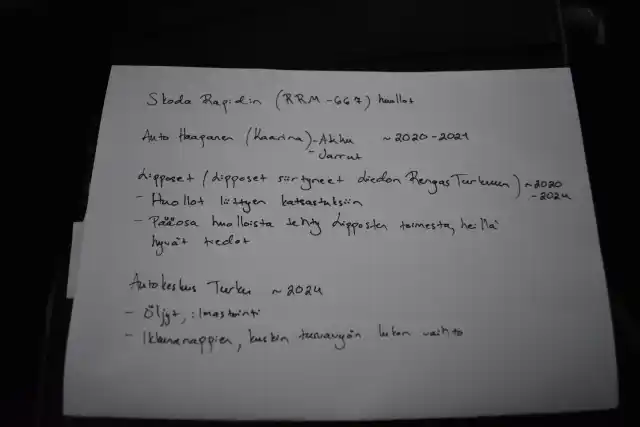 Skoda Rapidin (RRM-667) huollot
Auto Haaparen (Kaarina) - Akku ~2020-2021
- Jarrut
Lipposet (Lipposet siirtyneet tiedon Rengas Turkuun) ~2020
-2024
- Huollot liittyen katsastuksiin
- Pääosa huolloista tehty Lipposten toimesta, heillä
hyvät tiedot
Autokeskus Turku ~2024
- Öljyt, ilmastointi
- Ikkunanappien, kuskin turvavyön lukon vaihto